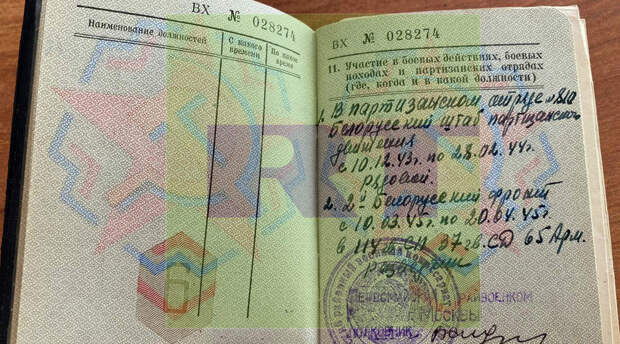 ВХ № 028274
Наименование должностей
С какого времени
По какое время
ВХ № 028274
11. Участие в боевых действиях, боевых
походах и партизанских отрядах
(где, когда и в какой должности)
1. В партизанском
Белорусский штаб партизанского
движения
с 10.12.43г. по 28.02.44г.
рядовой.
2. 2й Белорусский фронт
с 10.03.45г. по 20.04.45г.
в 114 СП 37 гв. СД 65 Арм.
разведчик
РАЙВОЕНКОМ
Г. МОСКВЫ
ПОЛКОВНИК